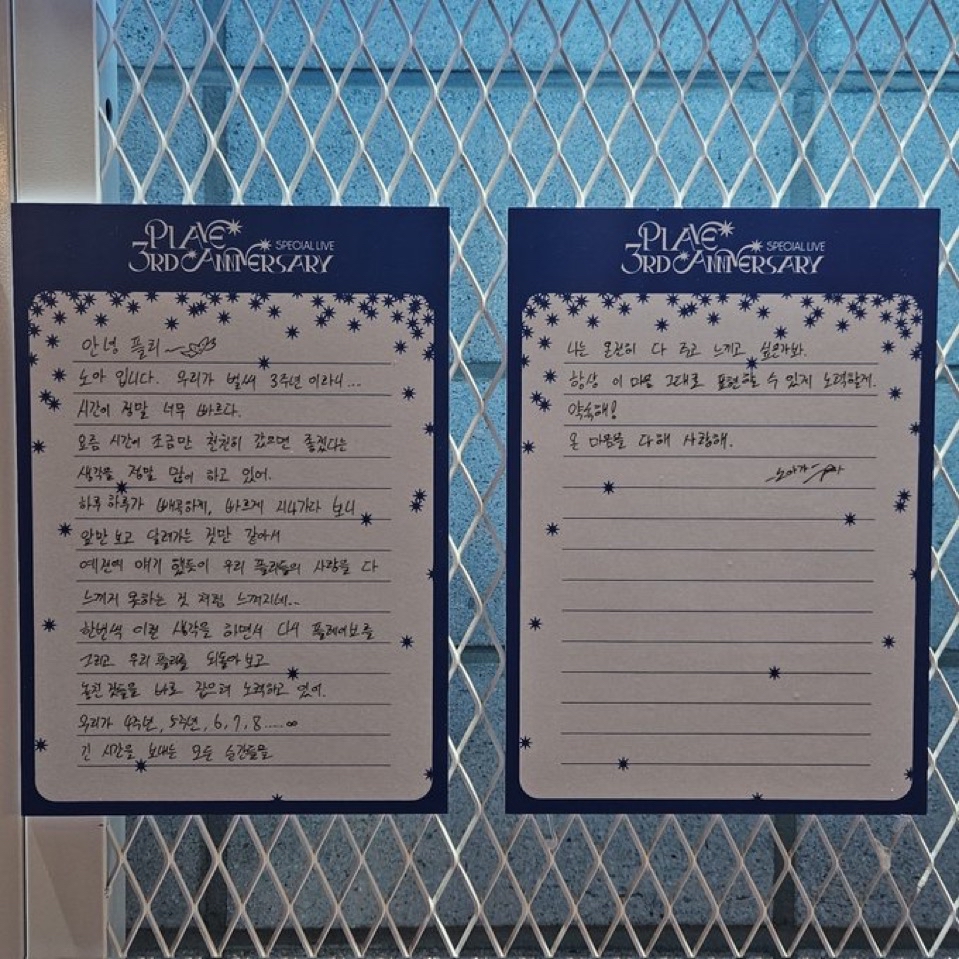 PLAVE
3RD ANNIVERSARY SPECIAL LIVE
안녕 플리
노아 입니다. 우리가 벌써 3주년 이라니...
시간이 정말 너무 빠르다.
요즘 시간이 조금만 천천히 갔으면 좋겠다는
생각을 정말 많이 하고 있어.
하루 하루가 빼곡하게, 빠르게 지나가다 보니
앞만 보고 달려가는 것만 같아서
예전에 얘기 했듯이 우리 플리들의 사랑을 다
느끼지 못하는 것 처럼 느껴지네..
한번씩 이런 생각을 하면서 다시 플레이브를
그리고 우리 플리를 되돌아 보고
놓친 것들을 바로 잡으려 노력하고 있어.
우리가 4주년, 5주년, 6, 7, 8.....∞
긴 시간을 보내는 모든 순간들을
PLAVE
3RD ANNIVERSARY SPECIAL LIVE
나는 온전히 다 주고 느끼고 싶은가봐.
항상 이 마음 그대로 표현할 수 있게 노력할게.
약속해!
온 마음을 다해 사랑해.
노아가